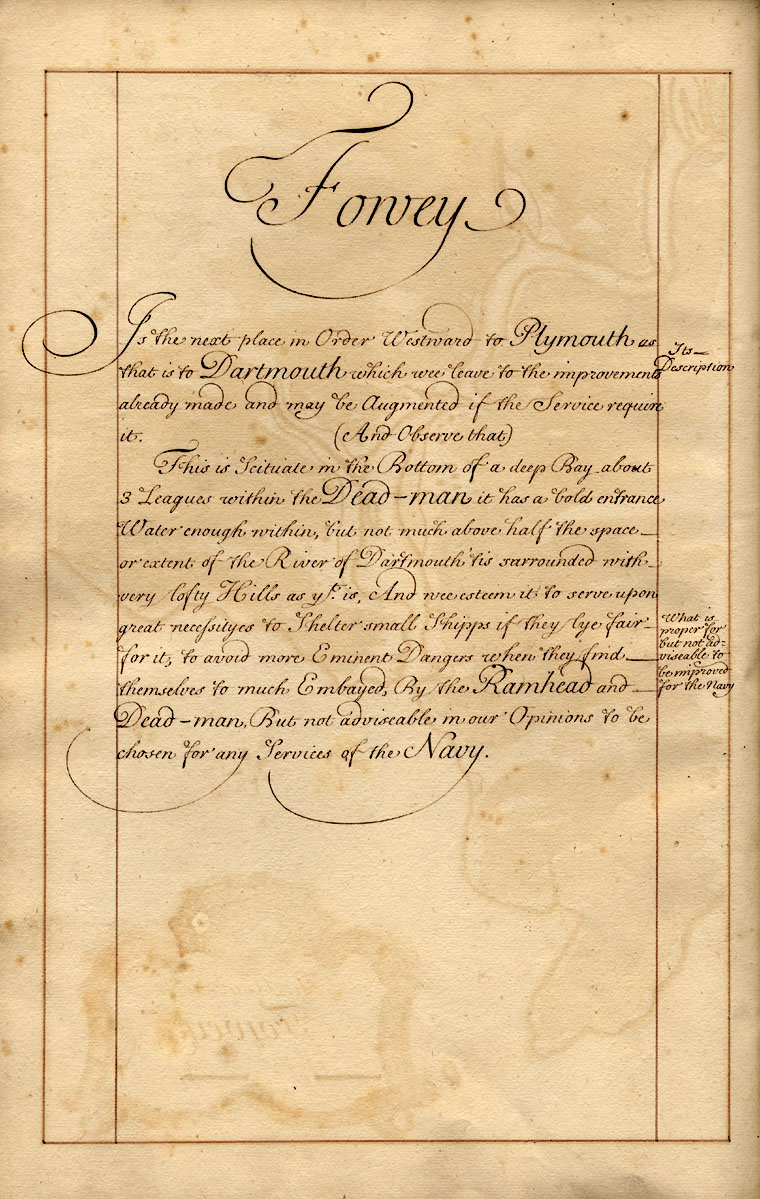 Fowey
Is the next place in Order Westward to Plymouth as
that is to Dartmouth which wee leave to the improvements
already made and may be Augmented if the Service require
it. (And Observe that)
This is Scituate in the Bottom of a deep Bay about
3 Leagues within the Dead-man it has a bold entrance
Water enough within, but not much above half the space
or extent of the River of Dartmouth tis surrounded with
very lofty Hills as yt. is, And wee esteem it to serve upon
great necessityes to Shelter small Shipps if they lye fair
for it, to avoid more Eminent Dangers when they find
themselves to much Embayed, By the Ramhead and
Dead-man, But not adviseable in our Opinions to be
chosen for any Services of the Navy.
Its
Description
What is
proper for
but not ad-
viseable to
be improved
for the Navy